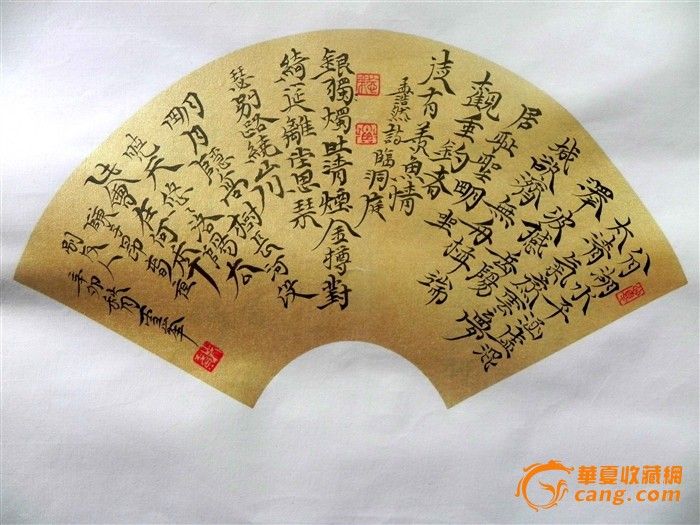 八月
湖水平涵虛混
太清氣蒸雲夢
澤波撼岳陽
城欲濟無舟楫端
居恥聖明坐
觀垂釣者
徒有羨魚情
孟浩然詩臨洞庭
銀獨燭吐清煙金樽對
綺延離堂思琴
瑟別路繞山川
明月隱高樹長河没
曉天悠悠洛陽去
此會在何年
陳子昂春夜
別友人辛卯
華夏收藏網
cang.com